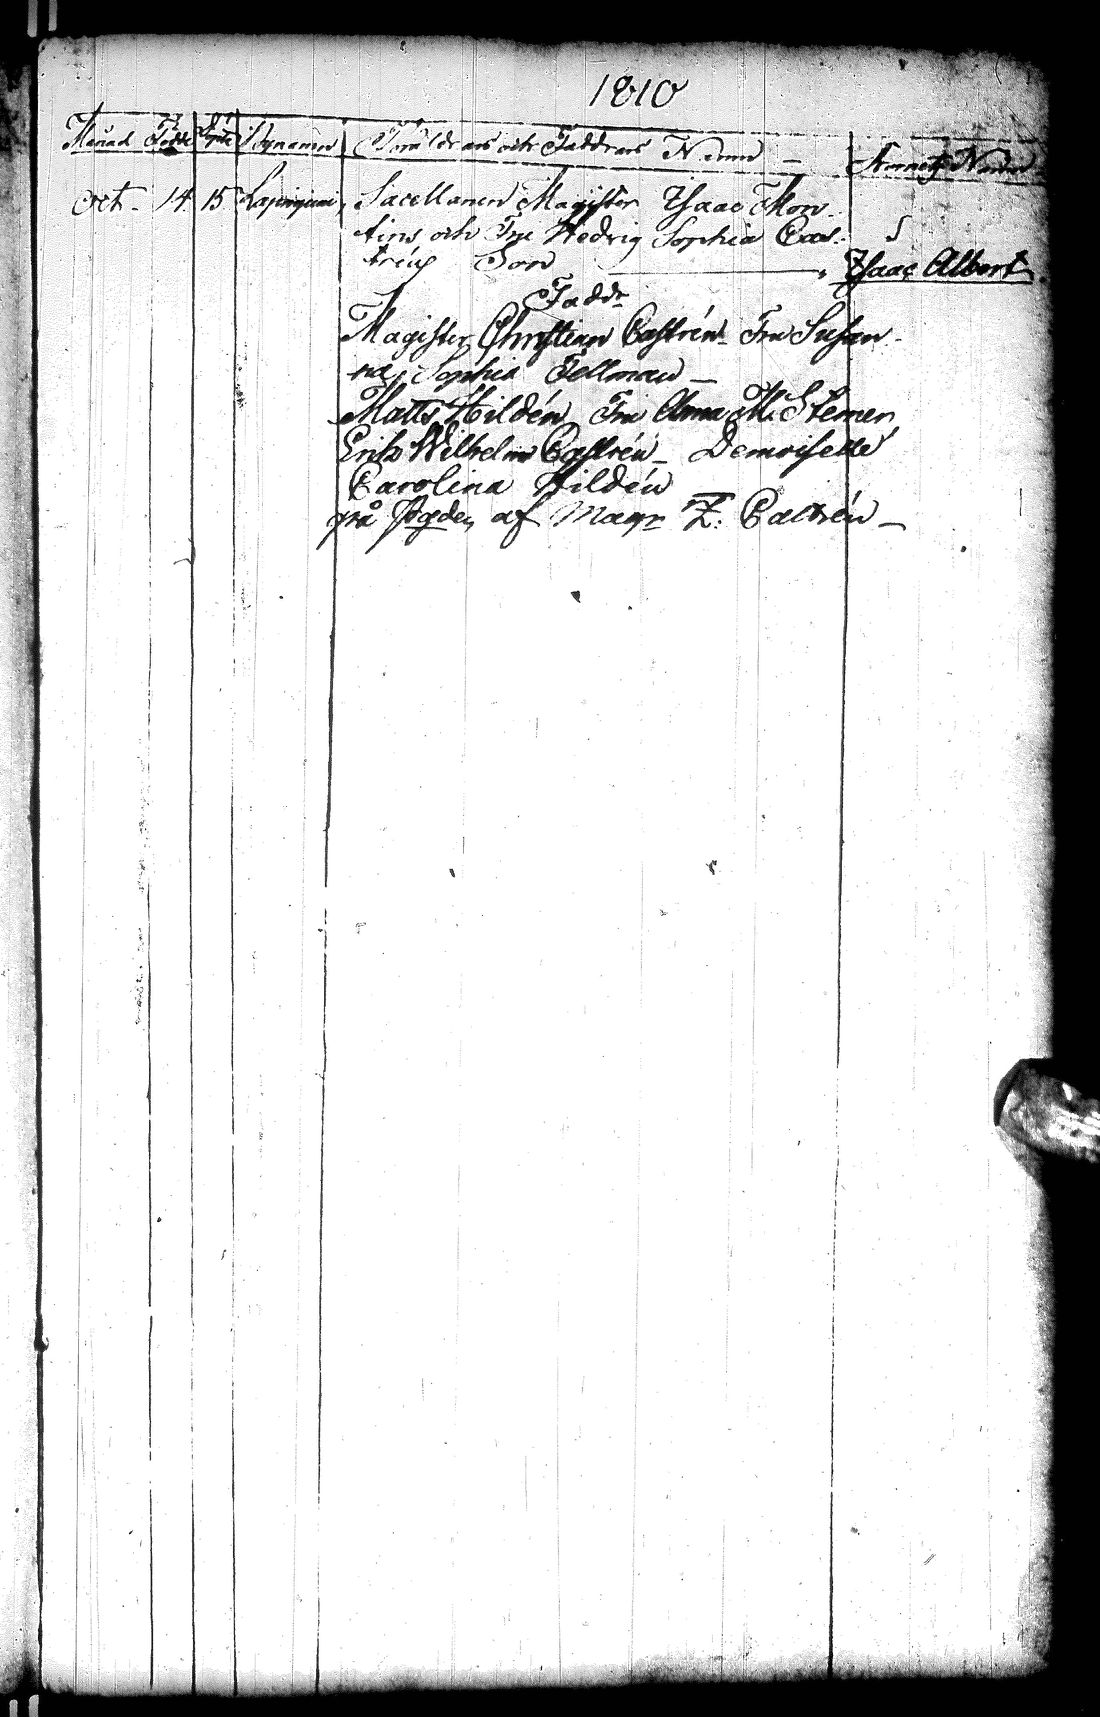 1810
Månad Födde Döpte Bynamn Föräldrars och Faddrars Namn – Barnets Namn
Oct. 14 15 Sacellanen Magister Isaac Mon-
tins och Fru Hedvig Sophia Cas-
tréns Son Isaac Albert
Faddr
Magister Christian Castrén Fru Susan-
na Sophia Fellman –
Matts Hildén Fru Anna M. Stenier
Erik Wilhelm Castrén – Demoiselle
Carolina Hildén
på af Magr Z. Castrén –